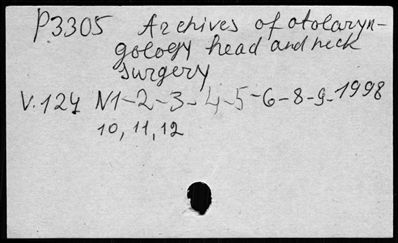 P3305 Archives of otolaryn-
gology head and neck
surgery
V.124 N1-2-3-4-5-6-8-9-1998
10, 11, 12